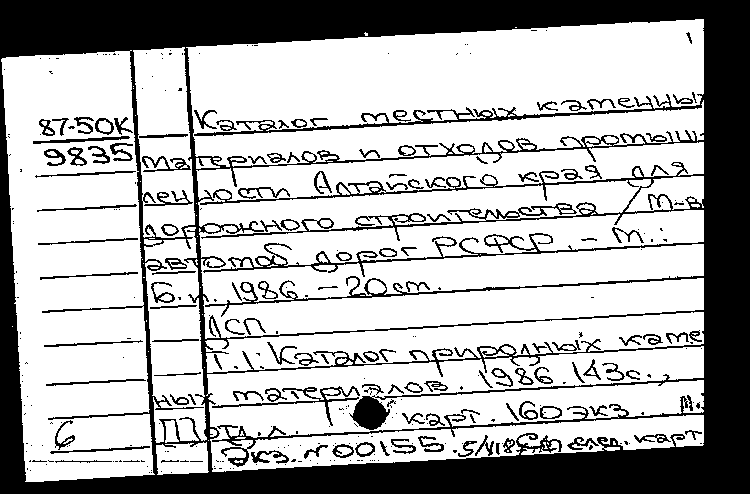 87-50К
9835
Каталог местных каменных
материалов и отходов промыш-
ленности Алтайского края для
дорожного строительства / М-во
автомоб. дорог РСФСР. - М.:
Б. и., 1986. - 20 см.
ДСП.
Т.1: Каталог природных камен
ных материалов. 1986. 143с.,
6
отд.л. карт. 160 экз.
Экз. №00155. след. карт